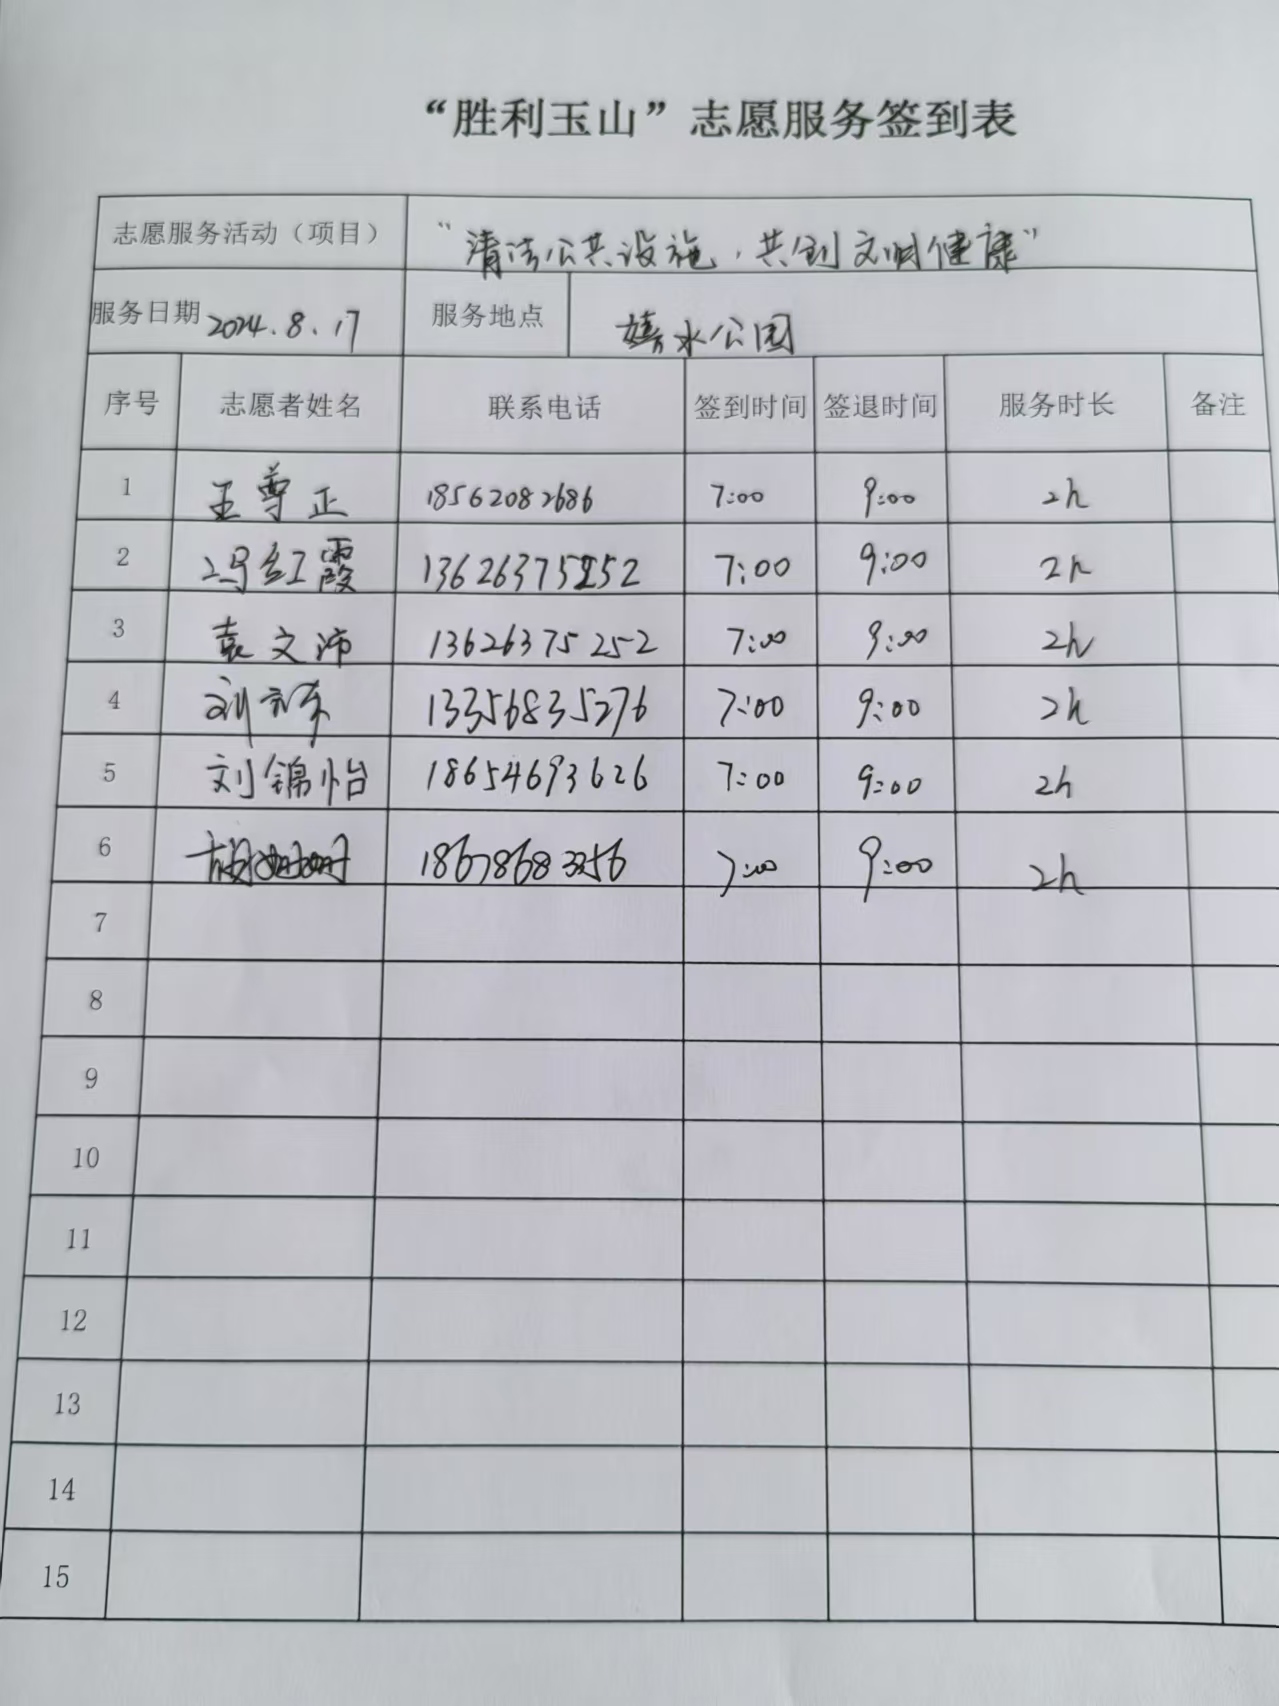 “胜利玉山”志愿服务签到表
志愿服务活动（项目） “清洁公共设施，共创文明健康”
服务日期 2024.8.17 服务地点 嬉水公园
序号 志愿者姓名 联系电话 签到时间 签退时间 服务时长 备注
1 王尊正 18562082686 7:00 9:00 2h
2 冯红霞 13626375252 7:00 9:00 2h
3 袁文沛 13626375252 7:00 9:00 2h
4 刘 13356835276 7:00 9:00 2h
5 刘锦怡 18654693626 7:00 9:00 2h
6 胡 18678683356 7:00 9:00 2h
7
8
9
10
11
12
13
14
15